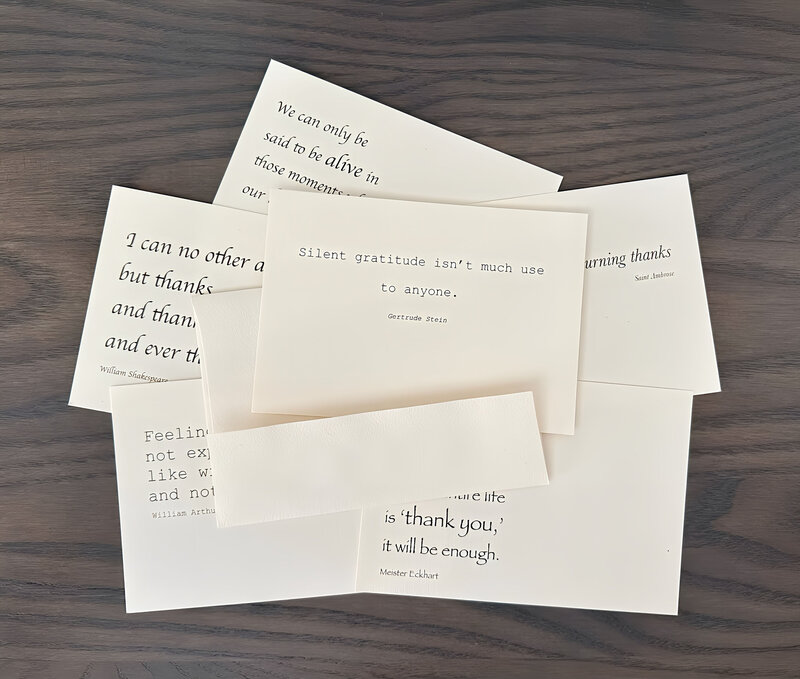 We can only be
said to be alive in
those moments
our
I can no other
but thanks
and
and ever
William Shakespeare
Silent gratitude isn't much use
to anyone.
Gertrude Stein
thanks
Saint Ambrose
not
like
and
William
life
is 'thank you,'
it will be enough.
Meister Eckhart